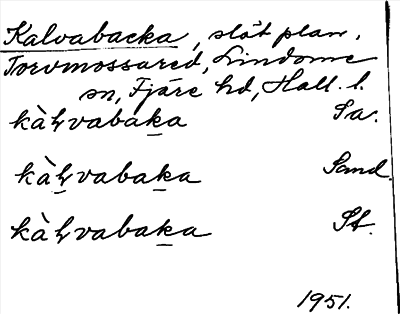 Kalvabacka, slät plan,
Torvmossared, Lindome
sn, Fjäre hd, Hall. l.
kàɫvabaka Sa.
kàɫvabaka Sand.
kàɫvabaka St.
1951.